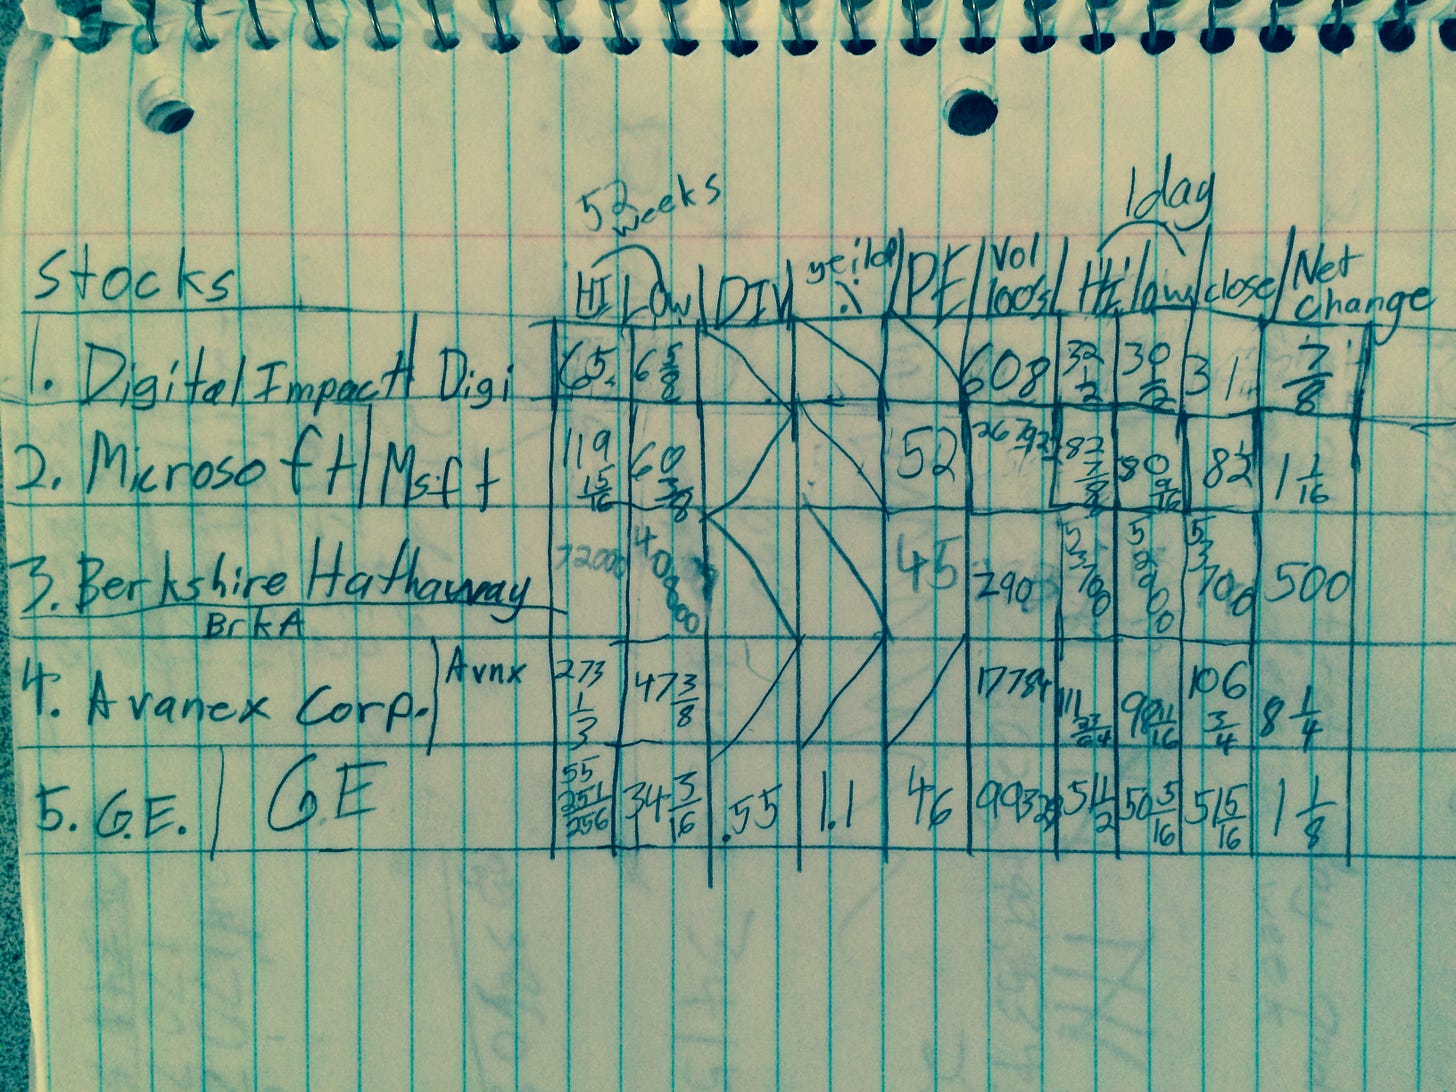 52 weeks 1 day
Stocks HI Low DIV yeild % PE Vol 100's Hi low close Net Change
1. Digital Impact Digi 65. 6 5/8 608 32 1/2 30 1/2 31 7/8
2. Microsoft Msft 119 15/16 60 3/8 52 82 7/8 80 9/16 1 1/16
3. Berkshire Hathaway 72000 40800 45 290 53700 52900 53700 500
BrkA
4. Avanex Corp. Avnx 273 1/3 47 3/8 17784 111 23/64 98 11/16 106 3/4 8 1/4
5. G.E. GE 55 251/256 34 3/16 .55 1.1 46 99329 51 1/2 50 5/16 51 5/16 1 1/8